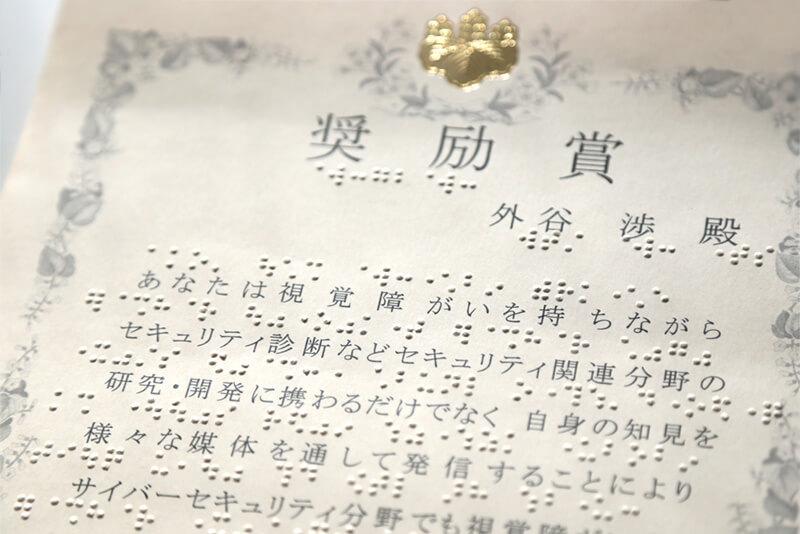 奨励賞
外谷 渉 殿
あなたは視覚障がいを持ちながら
セキュリティ診断などセキュリティ関連分野の
研究・開発に携わるだけでなく 自身の知見を
様々な媒体を通して発信することにより
サイバーセキュリティ分野でも視覚障が